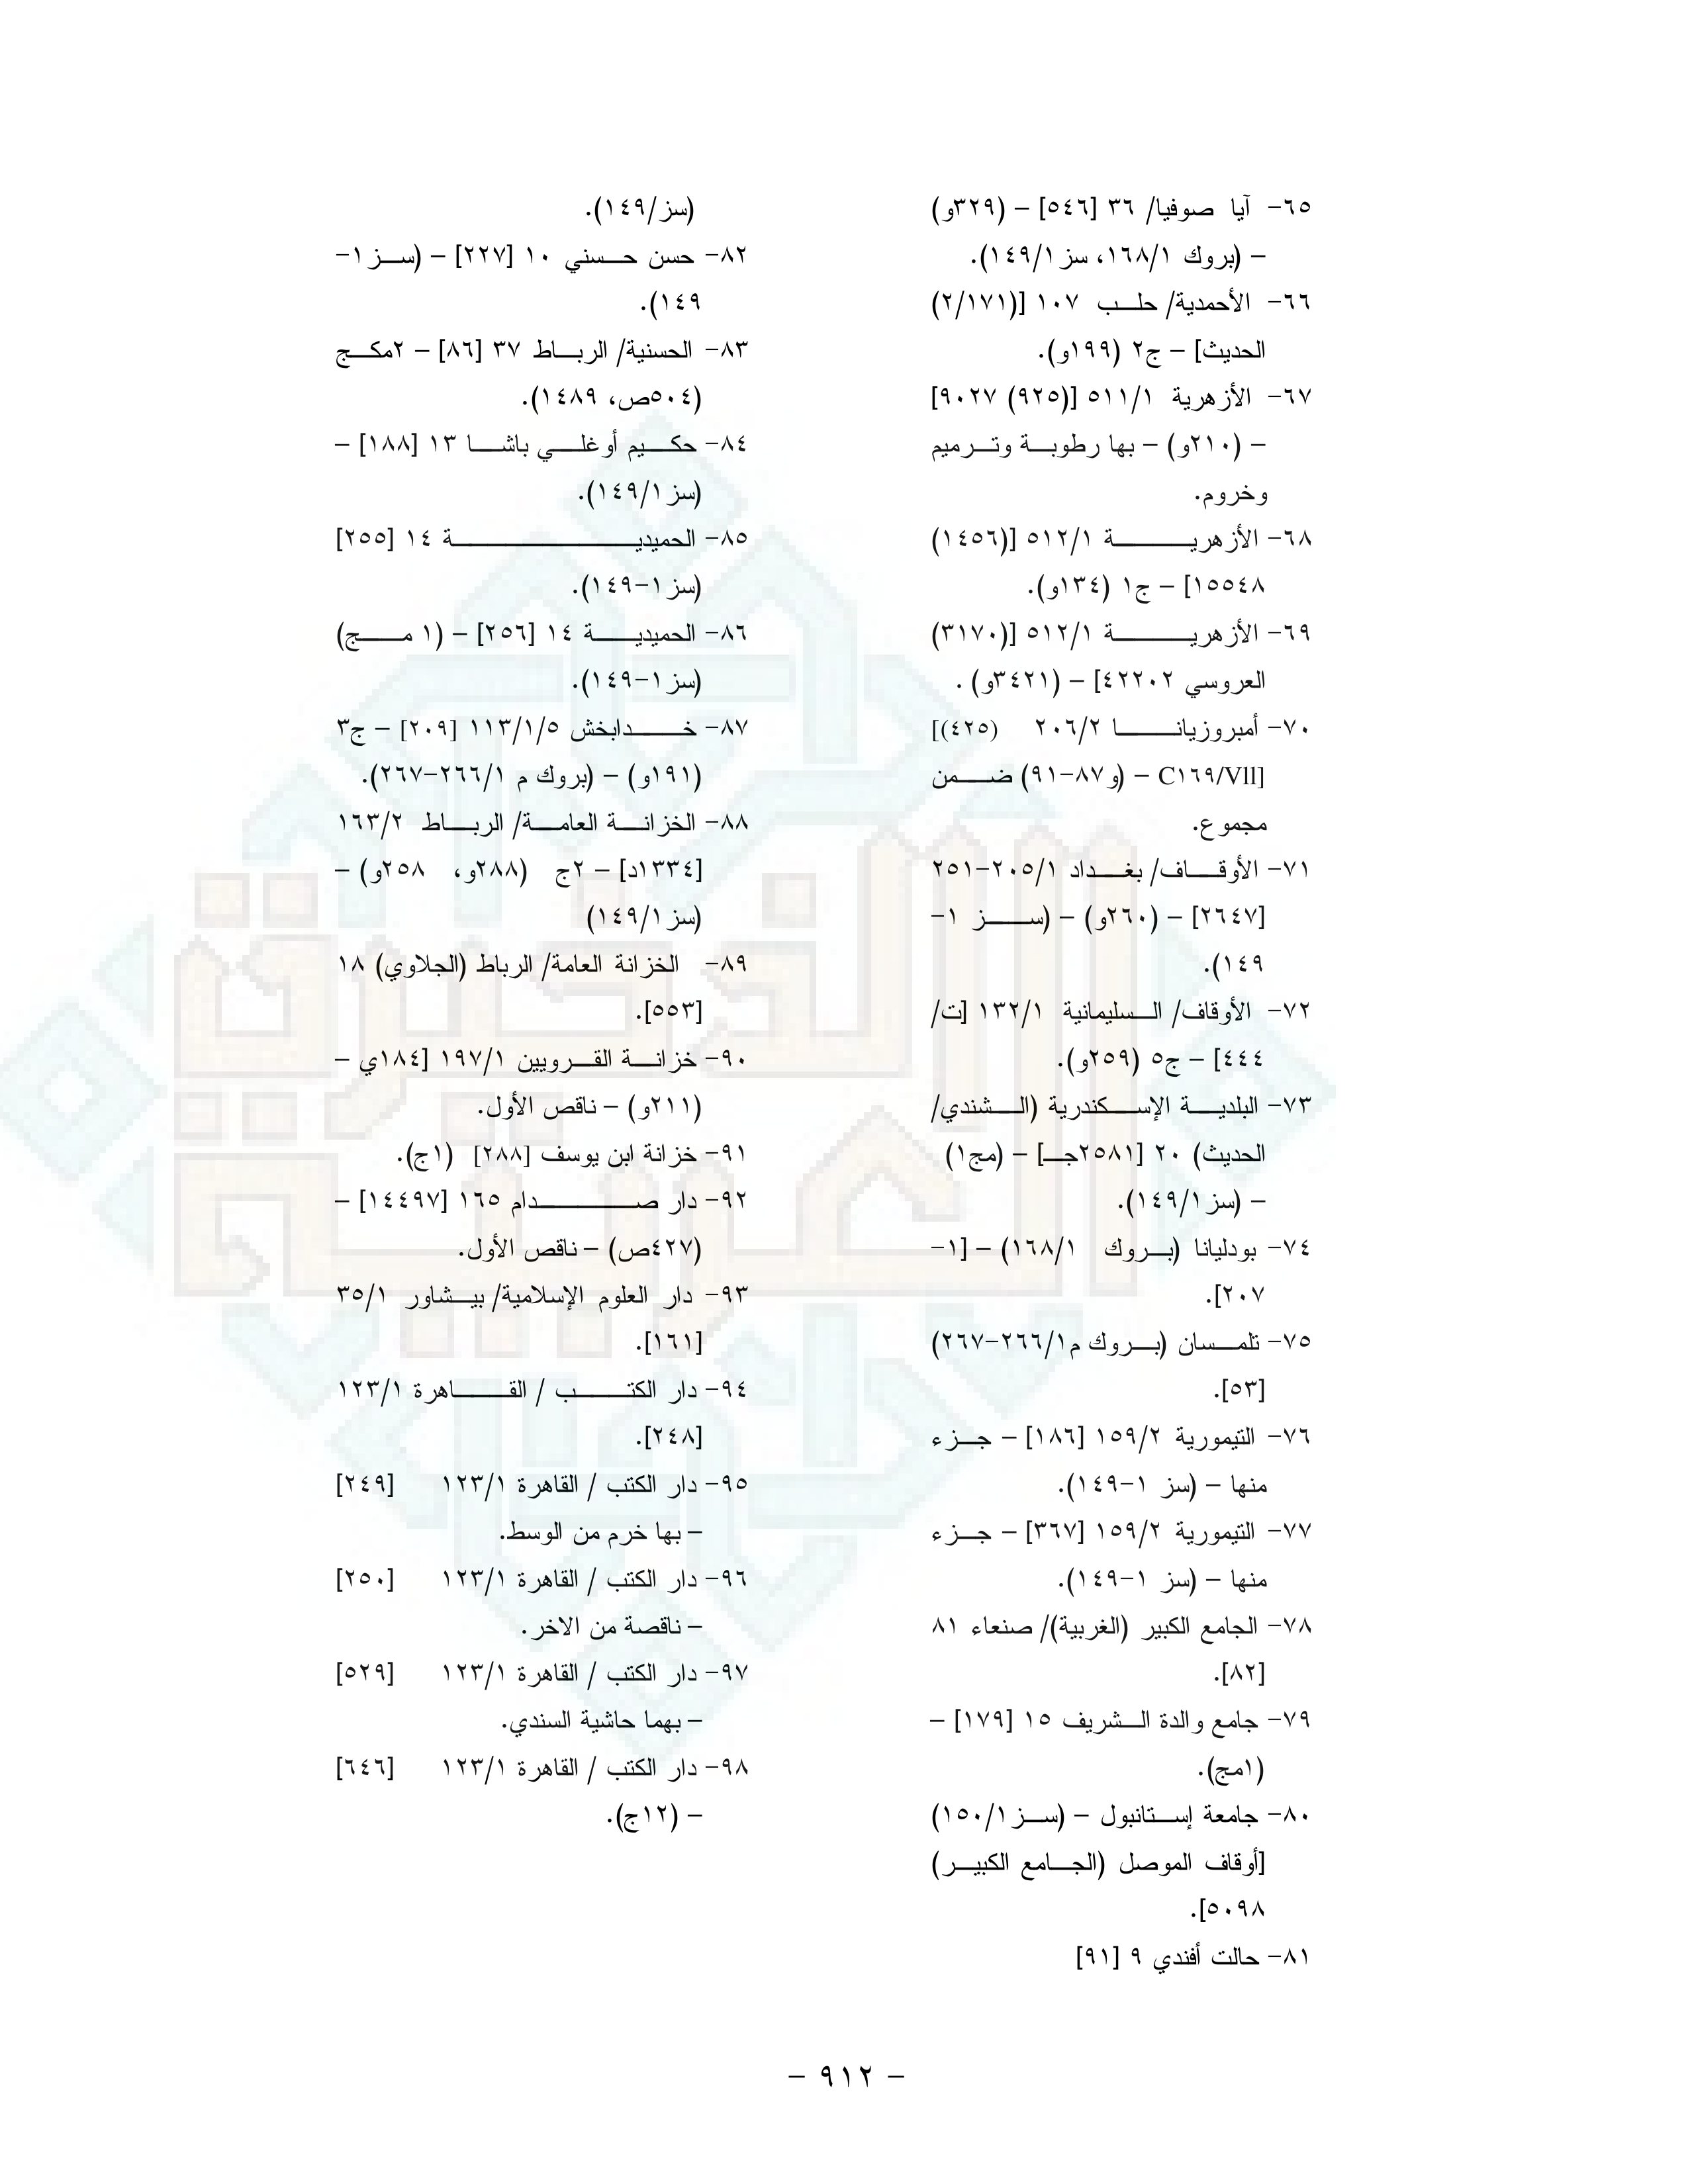 ٦٥- آيا صوفيا/ ٣٦ [٥٤٦] – (٣٢٩و)
– (بروك ١٦٨/١، سز١٤٩/١).
٦٦- الأحمدية/ حلب ١٠٧ [(٢/١٧١)
الحديث] – ج٢ (١٩٩و).
٦٧- الأزهرية ٥١١/١ [(٩٢٥) ٩٠٢٧]
– (٢١٠و) – بها رطوبة وترميم
وخروم.
٦٨- الأزهرية ٥١٢/١ [(١٤٥٦)
١٥٥٤٨] – ج١ (١٣٤و).
٦٩- الأزهرية ٥١٢/١ [(٣١٧٠)
العروسي ٤٢٢٠٢] – (٣٤٢١و) .
٧٠- أمبروزيانا ٢٠٦/٢ (٤٢٥)]
[C١٦٩/Vll – (و٨٧-٩١) ضمن
مجموع.
٧١- الأوقاف/ بغداد ٢٠٥/١-٢٥١
[٢٦٤٧] – (٢٦٠و) – (سز ١-
١٤٩).
٧٢- الأوقاف/ السليمانية ١٣٢/١ [ت/
٤٤٤] – ج٥ (٢٥٩و).
٧٣- البلدية الإسكندرية (الشندي/
الحديث) ٢٠ [٢٥٨١جـ] – (مج١)
– (سز١٤٩/١).
٧٤- بودليانا (بروك ١٦٨/١) – [١-
٢٠٧].
٧٥- تلمسان (بروك م٢٦٦/١-٢٦٧)
[٥٣].
٧٦- التيمورية ١٥٩/٢ [١٨٦] – جزء
منها – (سز ١-١٤٩).
٧٧- التيمورية ١٥٩/٢ [٣٦٧] – جزء
منها – (سز ١-١٤٩).
٧٨- الجامع الكبير (الغربية)/ صنعاء ٨١
[٨٢].
٧٩- جامع والدة الشريف ١٥ [١٧٩] –
(١مج).
٨٠- جامعة إستانبول – (سز١٥٠/١)
[أوقاف الموصل (الجامع الكبير)
٥٠٩٨].
٨١- حالت أفندي ٩ [٩١]
(سز/١٤٩).
٨٢- حسن حسني ١٠ [٢٢٧] – (سز١-
١٤٩).
٨٣- الحسنية/ الرباط ٣٧ [٨٦] – ٢مكج
(٥٠٤ص، ١٤٨٩).
٨٤- حكيم أوغلي باشا ١٣ [١٨٨] –
(سز١٤٩/١).
٨٥- الحميدية ١٤ [٢٥٥]
(سز١-١٤٩).
٨٦- الحميدية ١٤ [٢٥٦] – (١ مج)
(سز١-١٤٩).
٨٧- خدابخش ١١٣/١/٥ [٢٠٩] – ج٣
(١٩١و) – (بروك م ٢٦٦/١-٢٦٧).
٨٨- الخزانة العامة/ الرباط ١٦٣/٢
[١٣٣٤د] – ٢ج (٢٨٨و، ٢٥٨و) –
(سز١٤٩/١)
٨٩- الخزانة العامة/ الرباط (الجلاوي) ١٨
[٥٥٣].
٩٠- خزانة القرويين ١٩٧/١ [١٨٤ي –
(٢١١و) – ناقص الأول.
٩١- خزانة ابن يوسف [٢٨٨] (١ج).
٩٢- دار صدام ١٦٥ [١٤٤٩٧] –
(٤٢٧ص) – ناقص الأول.
٩٣- دار العلوم الإسلامية/ بيشاور ٣٥/١
[١٦١].
٩٤- دار الكتب / القاهرة ١٢٣/١
[٢٤٨].
٩٥- دار الكتب / القاهرة ١٢٣/١ [٢٤٩]
– بها خرم من الوسط.
٩٦- دار الكتب / القاهرة ١٢٣/١ [٢٥٠]
– ناقصة من الاخر.
٩٧- دار الكتب / القاهرة ١٢٣/١ [٥٢٩]
– بهما حاشية السندي.
٩٨- دار الكتب / القاهرة ١٢٣/١ [٦٤٦]
– (١٢ج).
– ٩١٢ –